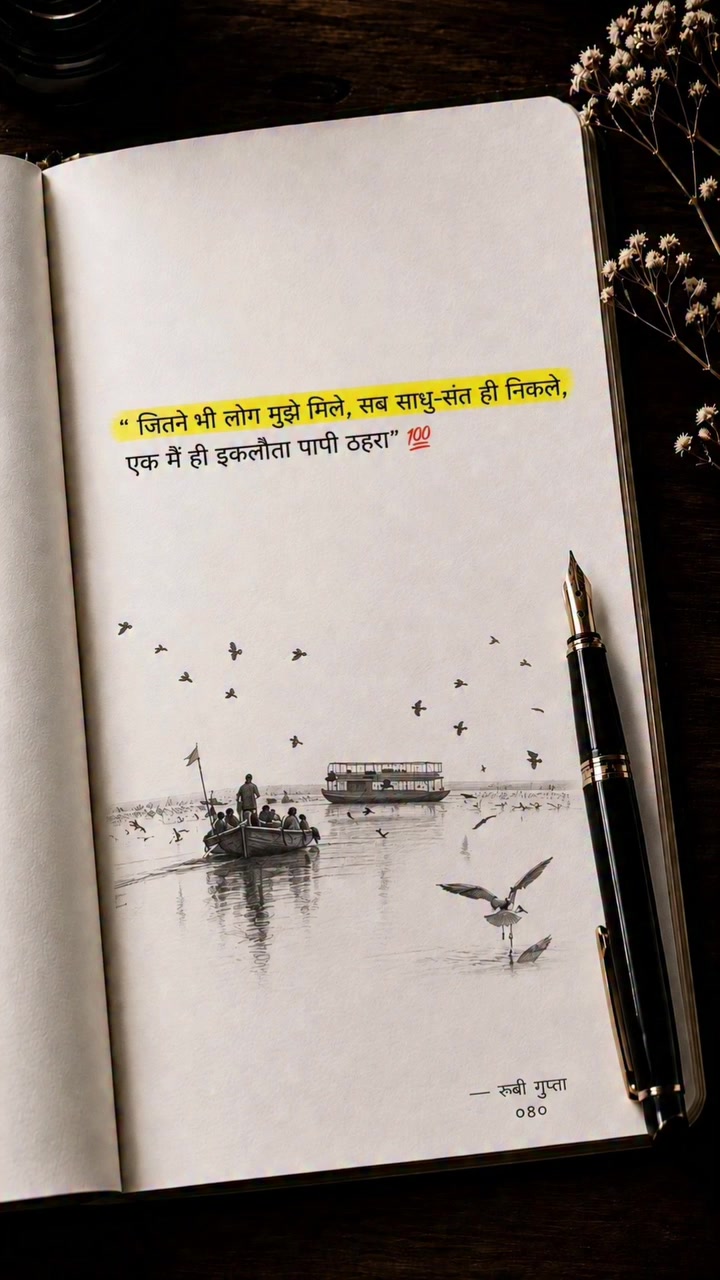 “ जितने भी लोग मुझे मिले, सब साधु-संत ही निकले,
एक मैं ही इकलौता पापी ठहरा” 💯
— रूबी गुप्ता
०८०